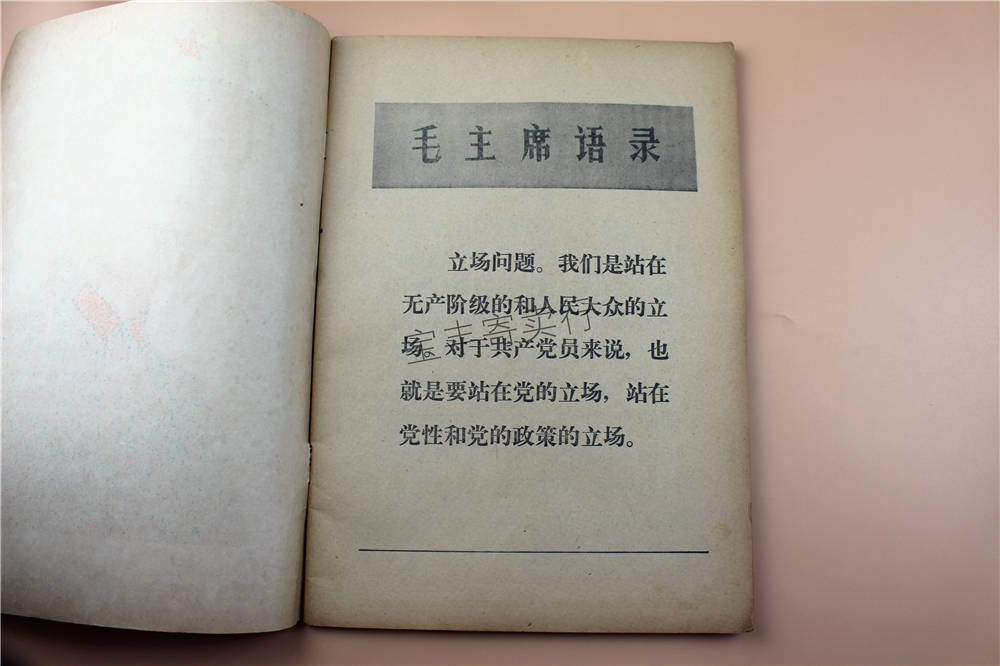 毛主席语录
立场问题。我们是站在
无产阶级的和人民大众的立
场。对于共产党员来说，也
就是要站在党的立场，站在
党性和党的政策的立场。
宝丰寄卖行